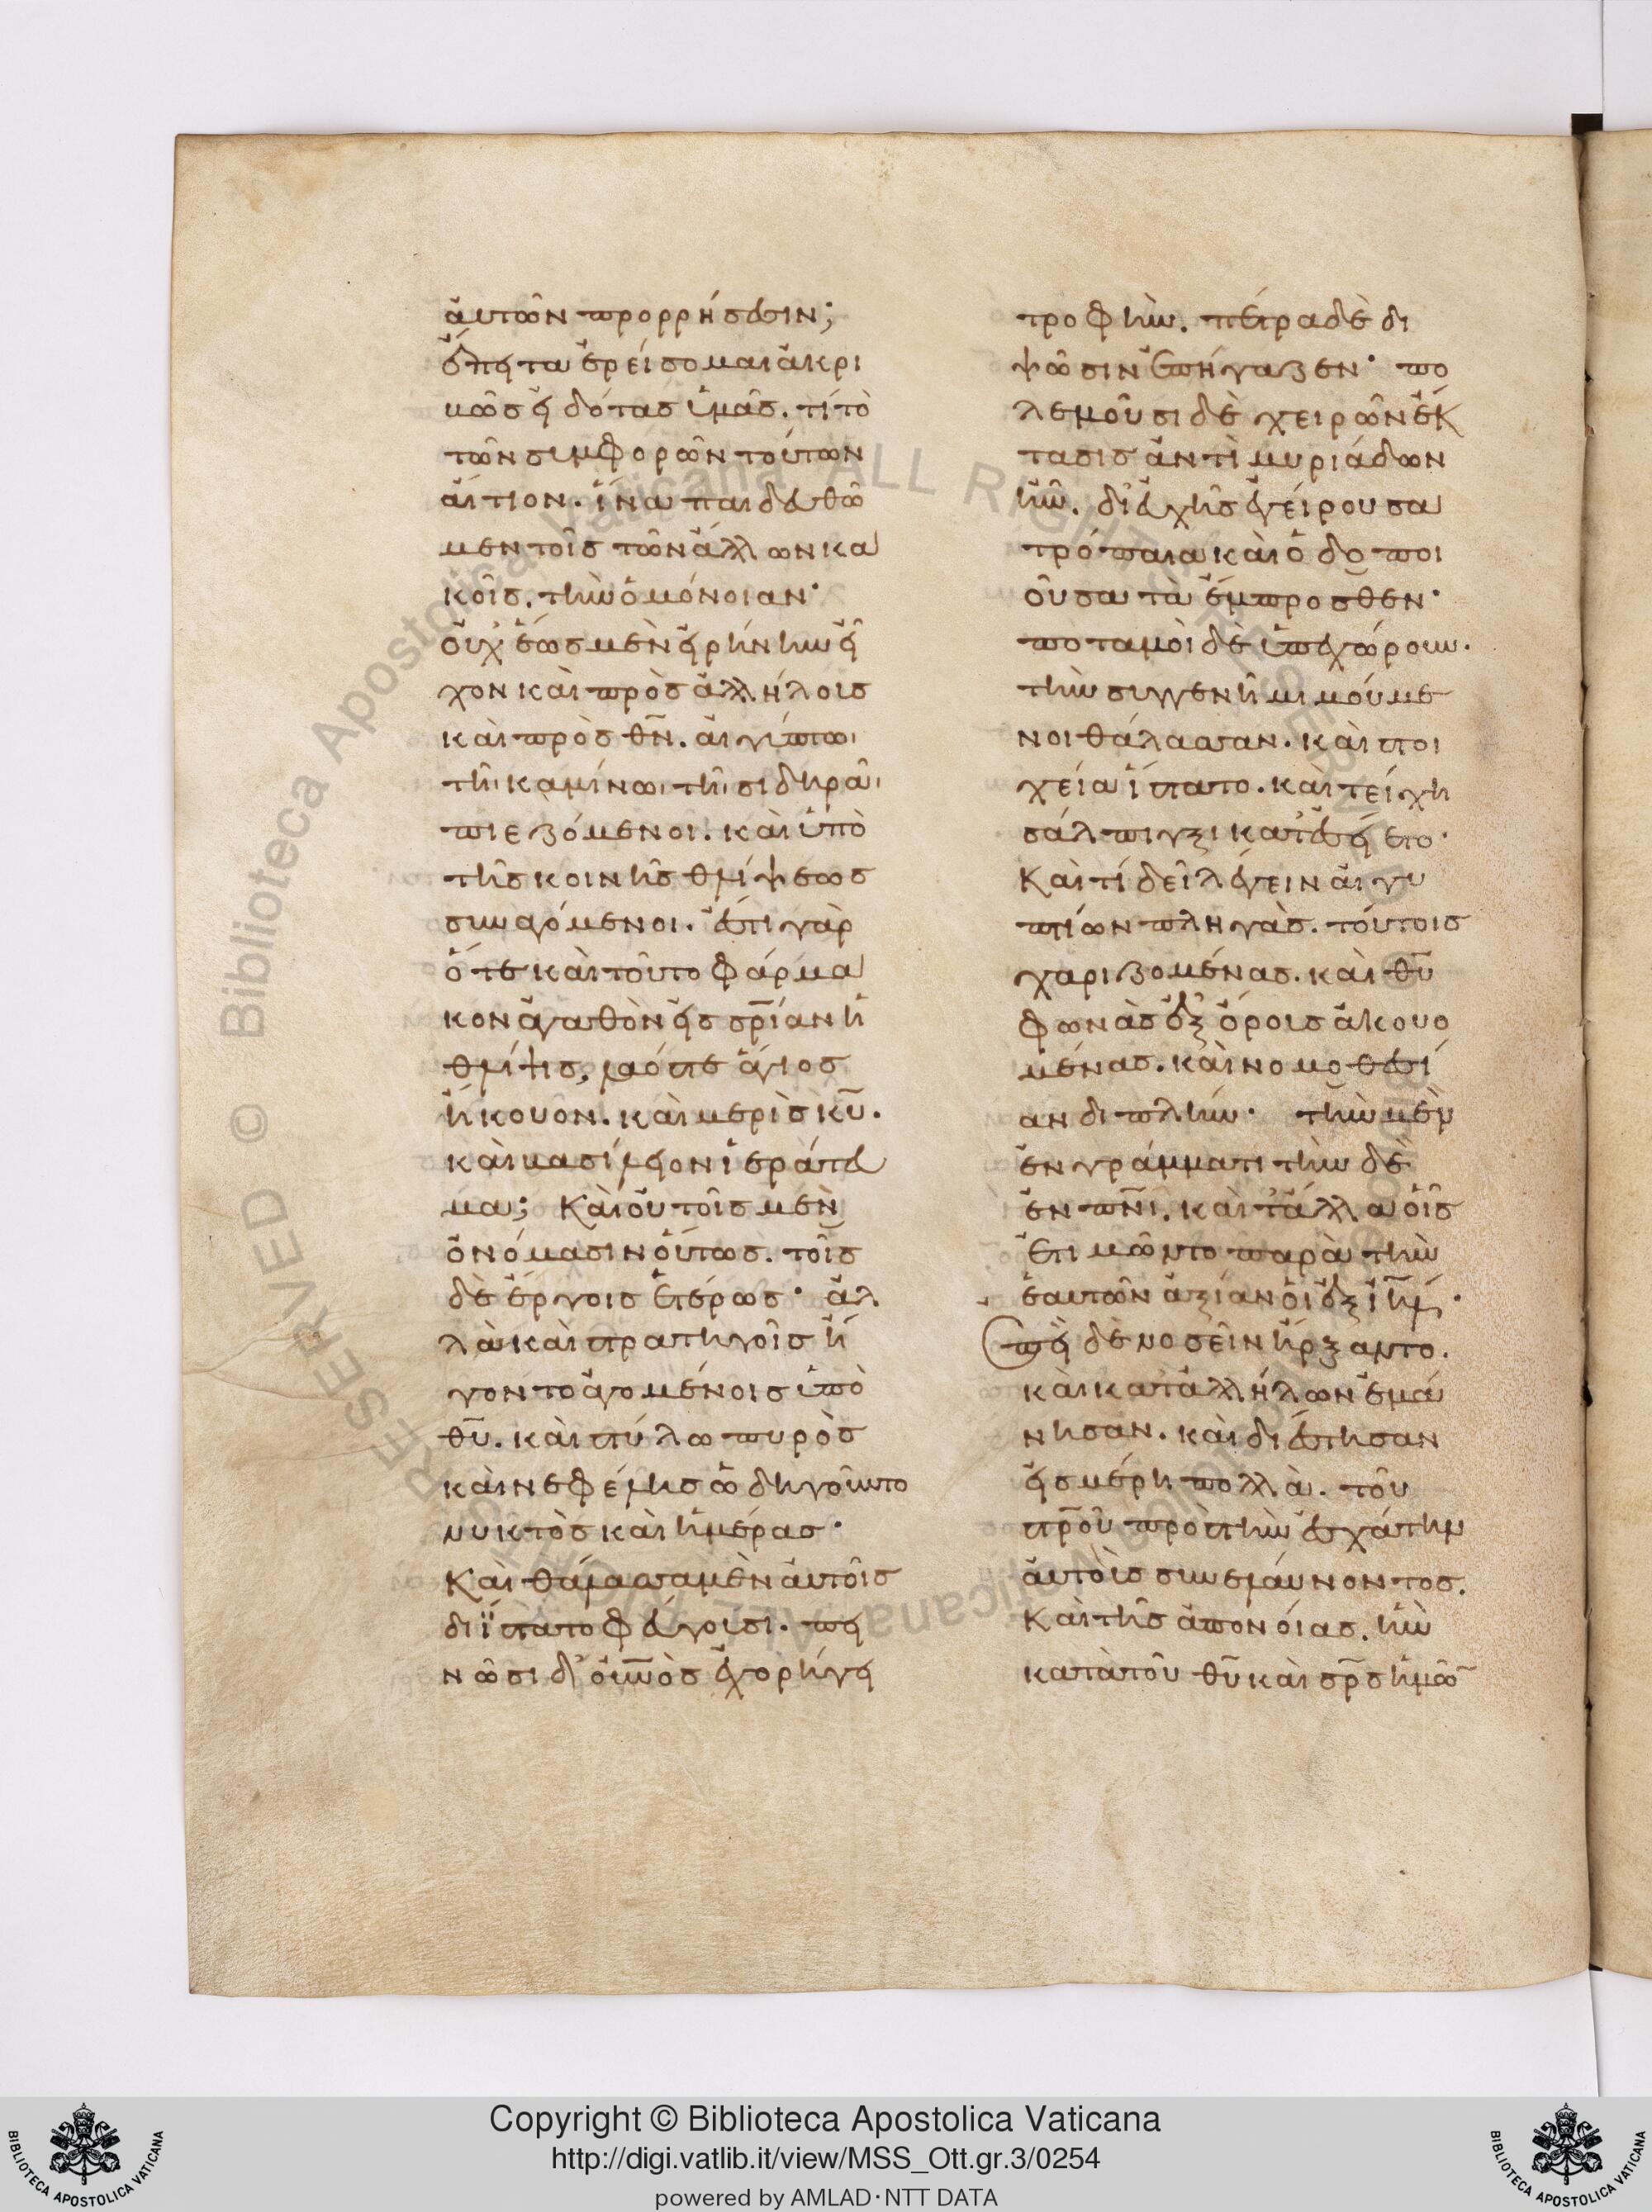 ἀυτῶν προρρήσεσιν;
ἔπειτα ἐρείσομαι ἀκρι
κῶς εἰδότας ὑμᾶς. τί τὸ
τῶν συμφορῶν τούτων
ἄιτιον. ἵνα παιδευθῶ
μεν τοῖς τῶν ἄλλων κα
κοῖς. τὴν ὁμόνοιαν·
οὐχ ἕως μὲν εἰρήνην εἶ
χον καὶ πρὸς ἀλλήλους
καὶ πρὸς θν. αἰγύπτωι
τῆι καμίνωι τῆι σιδηρᾶι
πιεζόμενοι. καὶ ὑπὸ
τῆς κοινῆς θλίψεως
συναγόμενοι. ἔστι γὰρ
ὅτε καὶ τοῦτο φάρμα
κον ἀγαθὸν εἰς σρίαν ἡ
θλίψις. λαός τε ἅγιος
ἤκουον. καὶ μερὶς κυ.
καὶ βασίλειον ἱεράτευ
μα; Καὶ οὐ τοῖς μὲν
ὀνόμασιν οὕτως. τοῖς
δὲ ἔργοις ἑτέρως· ἀλ
λὰ καὶ στρατηγοῖς ἤ
γοντο ἀγομένοις ὑπὸ
θυ. καὶ στύλω πυρὸς
καὶ νεφέλης ὡδηγοῦντο
νυκτὸς καὶ ἡμέρας·
Καὶ θάλασσα μὲν αὐτοῖς
διΐστατο φεύγουσι. πει
νῶσι δ' οὐνὸς ἐχορήγει
τροφὴν. πέτρα δὲ δι
ψῶσιν ἐπήγαζεν· πο
λεμοῦσι δὲ χειρῶν ἔκ
τασις ἀντὶ μυριάδων
ἦν. δι' εὐχῆς ἐγείρουσα
τρόπαια καὶ ὁδοποι
οῦσα τὰ ἔμπροσθεν·
ποταμοὶ δὲ ὑπεχώρουν.
τὴν συγγενῆ μιμούμε
νοι θάλασσαν. καὶ στοι
χεία ἵστατο. καὶ τείχη
σάλπιγξι κατεσείετο·
Καὶ τί δεῖ λέγειν αἰγυ
πτίων πληγὰς. τούτοις
χαριζομένας. καὶ θυ
φωνὰς ἐξ ὄρους ἀκουο
μένας. καὶ νομοθεσί
αν διπλὴν· τὴν μὲν
ἐν γράμματι τὴν δὲ
ἐν πνι. καὶ τἄλλα οἷς
ἐτιμῶντο παρὰ τὴν
ἑαυτῶν ἀξίαν οἱ ἐξ ιηλ·
Ἐπεὶ δὲ νοσεῖν ἤρξαντο.
καὶ κατ' ἀλλήλων ἐμά
νησαν. καὶ διέστησαν
εἰς μέρη πολλὰ. τοῦ
στρου πρὸς τὴν ἐσχάτην
αὐτοὺς συνελαύνοντος.
Καὶ τῆς ἀπονοίας. ἣν
κατὰ τοῦ θυ καὶ σρς ἡμῶ
Copyright © Biblioteca Apostolica Vaticana
http://digi.vatlib.it/view/MSS_Ott.gr.3/0254
powered by AMLAD·NTT DATA